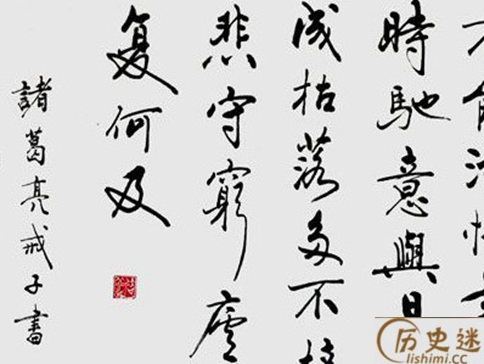 不能
時馳意與日
成枯落多不接
悲守窮廬
复何及
諸葛亮戒子書
历史迷
lishimi.cc